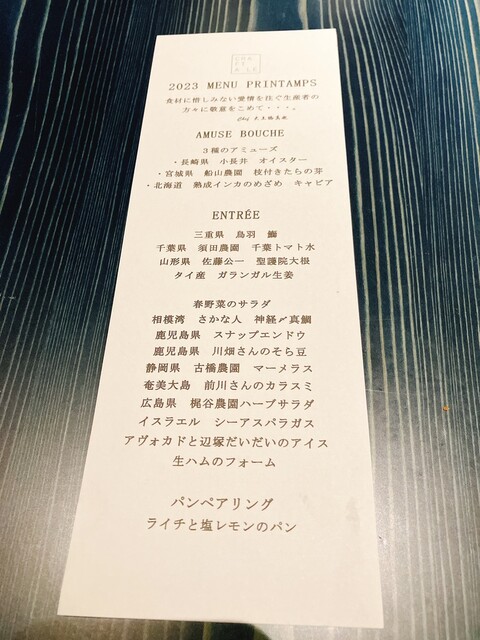 2023 MENU PRINTAMPS
食材に惜しみない愛情を注ぐ生産者の
方々に敬意をこめて・・・。
AMUSE BOUCHE
3種のアミューズ
・長崎県 小長井 オイスター
・宮城県 船山農園 枝付きたらの芽
・北海道 熟成インカのめざめ キャビア
ENTRÉE
三重県 鳥羽 鰤
千葉県 須田農園 千葉トマト水
山形県 佐藤公一 聖護院大根
タイ産 ガランガル生姜
春野菜のサラダ
相模湾 さかな人 神経〆真鯛
鹿児島県 スナップエンドウ
鹿児島県 川畑さんのそら豆
静岡県 古橋農園 マーメラス
奄美大島 前川さんのカラスミ
広島県 梶谷農園ハーブサラダ
イスラエル シーアスパラガス
アヴォカドと辺塚だいだいのアイス
生ハムのフォーム
パンペアリング
ライチと塩レモンのパン